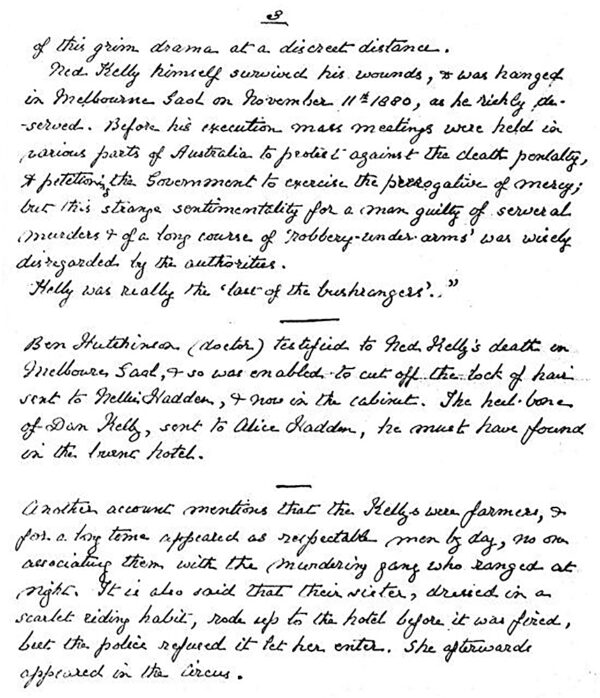 3
of this grim drama at a discreet distance.
Ned Kelly himself survived his wounds, & was hanged
in Melbourne Gaol on November 11th 1880, as he richly de-
-served. Before his execution mass meetings were held in
various parts of Australia to protest against the death penalty,
& petitioning the Government to exercise the prerogative of mercy;
but this strange sentimentality for a man guilty of several
murders & of a long course of 'robbery-under-arms' was wisely
disregarded by the authorities.
Kelly was really the 'last of the bushrangers'.."
Ben Hutchinson (doctor) testified to Ned Kelly's death in
Melbourne Gaol, & so was enabled to cut off the lock of hair
sent to Nellie Hadden, & now in the cabinet. The heel-bone
of Dan Kelly, sent to Alice Hadden, he must have found
in the burnt hotel.
Another account mentions that the Kellys were farmers, &
for a long time appeared as respectable men by day, no one
associating them with the murdering gang who ranged at
night. It is also said that their sister, dressed in a
scarlet riding habit, rode up to the hotel before it was fired,
but the police refused it let her enter. She afterwards
appeared in the circus.